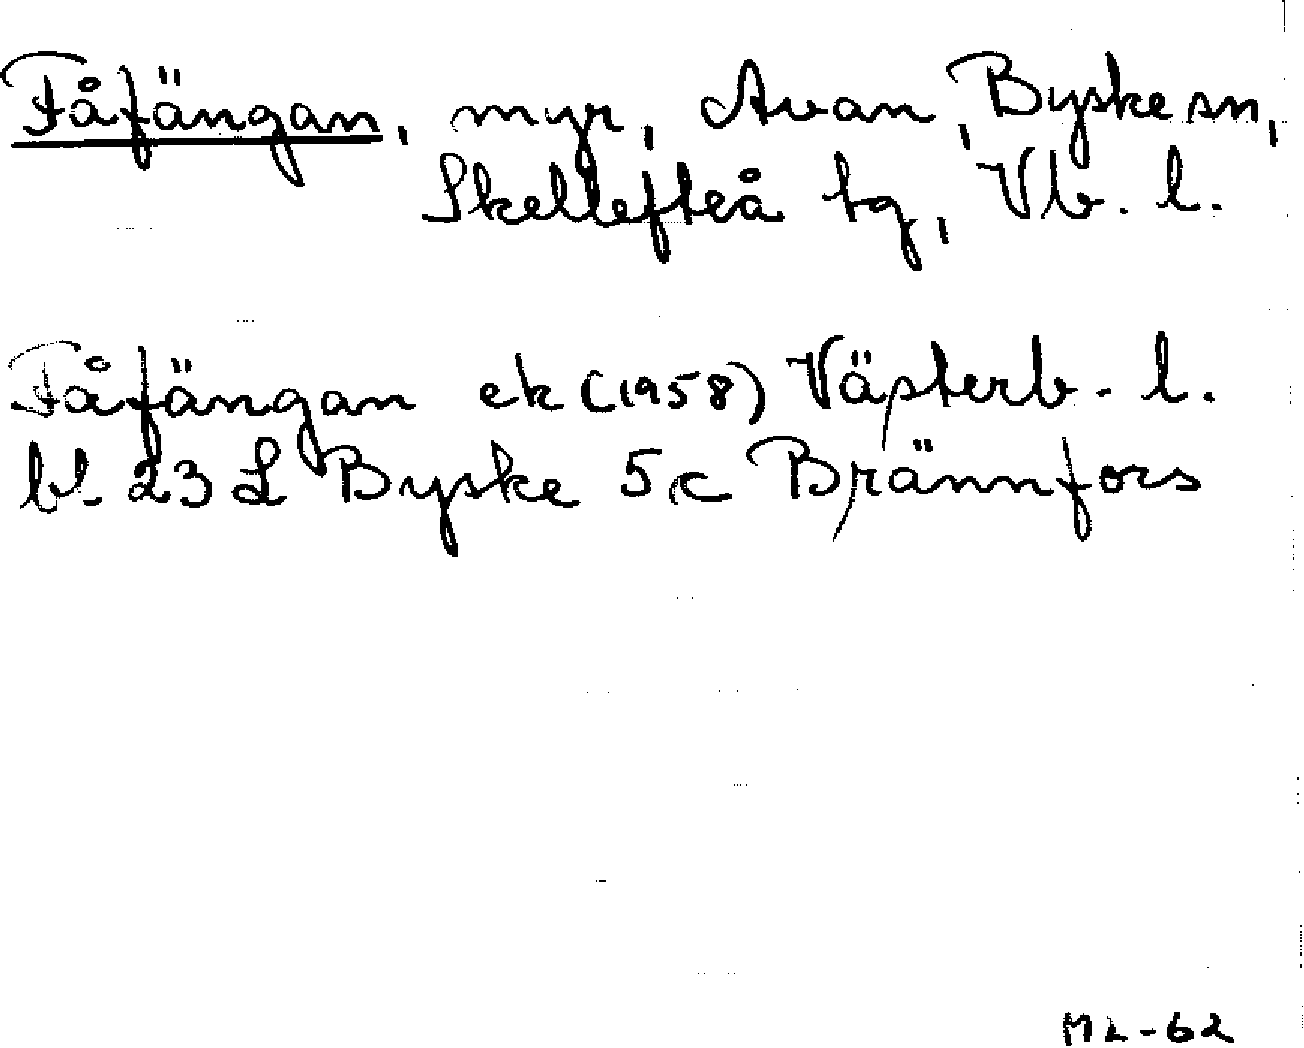 Fåfängan, myr, Avan, Byske sn,
Skellefteå tg, Vb. l.
Fåfängan ek (1958) Västerb. l.
bl. 23 L Byske 5c Brännfors
ML-62